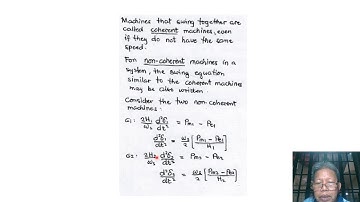 Machines that swing together are
called coherent machines, even
if they do not have the same
speed.
For non-coherent machines in a
system, the swing equation
similar to the coherent machines
may be also written.
Consider the two non-coherent
machines.
G1: 2H1/ωs d²δ1/dt² = Pm1 - Pe1
d²δ1/dt² = ωs/2 [Pm1 - Pe1/H1]
G2: 2H2/ωs d²δ2/dt² = Pm2 - Pe2
d²δ2/dt² = ωs/2 [Pm2 - Pe2/H2]